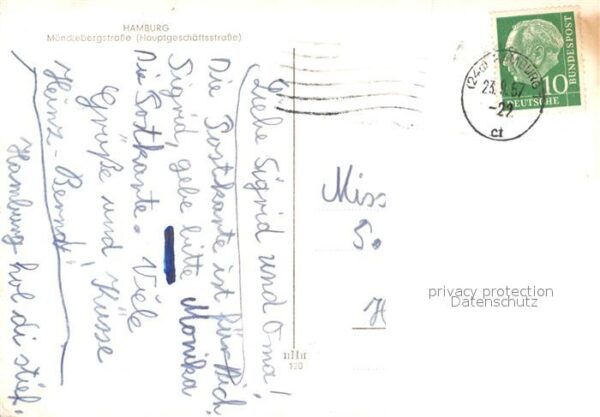 HAMBURG
Mönckebergstraße (Hauptgeschäftsstraße)
Liebe Sigrid und Oma!
Die Postkarte ist für Dich,
Sigrid, gebe bitte Monika
Die Potkarte. Viele
Grüße und Küsse
Heinz-Bernd
Hamburg hol di stief.
(24a) HAMBURG
23.9.57
-22
ct
10
DEUTSCHE
BUNDESPOST
Miss
So
H
privacy protection
Datenschutz
120